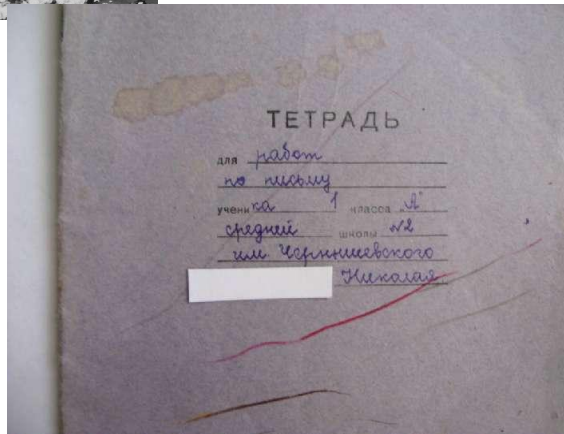 ТЕТРАДЬ
для работ
по письму
ученика 1 класса „А"
средней школы №2
им. Чернышевского
Николая